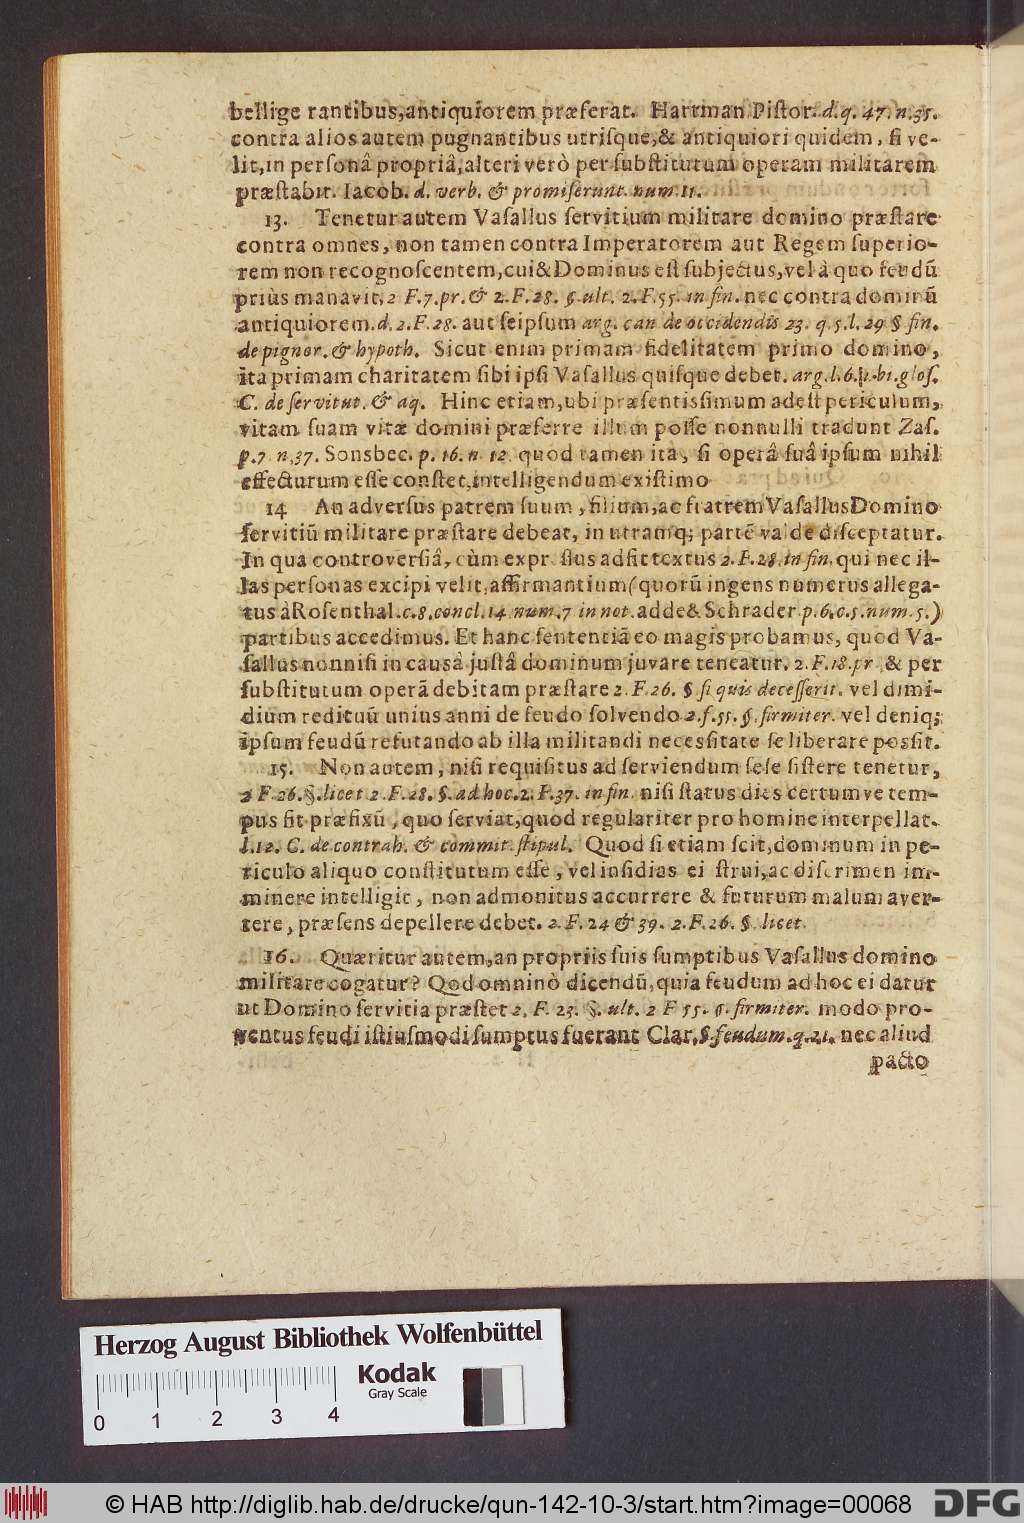 bellige rantibus,antiquiorem præferat. Hartman Piſtor. d. q. 47. n.35.
contra alios autem pugnantibus utriſque,& antiquiori quidem, ſi ve-
lit,in perſonâ propriâ,alteri verò per ſubſtitutum operam militarem
præſtabit. Iacob. d. verb. & promiſerunt. num. 11.
13. Tenetur autem Vaſallus ſervitium militare domino præſtare
contra omnes, non tamen contra Imperatorem aut Regem ſuperio-
rem non recognoſcentem,cui & Dominus eſt ſubjectus,vel à quo feudũ
priùs manavit, 2 F.7.pr. & 2. F. 28. §. ult. 2. F. 55. in fin. nec contra dominũ
antiquiorem. d. 2. F. 28. aut ſeipſum arg. can de occidendis 23. q. 5. l. 29 § fin.
de pignor. & hypoth. Sicut enim primam fidelitatem primo domino,
ita primam charitatem ſibi ipſi Vaſallus quiſque debet. arg. l. 6. gloſ.
C. de ſervitut. & aq. Hinc etiam, ubi præſentiſſimum adeſt periculum,
vitam ſuam vitæ domini præferre illum poſſe nonnulli tradunt Zaſ.
p.7 n.37. Sonsbec. p. 16. n 12. quod tamen ita, ſi operâ ſuâ ipſum nihil
effecturum eſſe conſtet,intelligendum exiſtimo
14 An adverſus patrem ſuum, filium, ac fratrem Vaſallus Domino
ſervitiũ militare præſtare debeat, in utramq; partẽ valde diſceptatur.
In qua controverſiâ, cùm expr ſſus adſit textus 2. F. 28. in fin. qui nec il-
las perſonas excipi velit, affirmantium (quorũ ingens numerus allega-
tus à Roſenthal. c. 8. concl. 14 num. 7 in not. adde & Schrader p. 6. c. 5. num. 5.)
partibus accedimus. Et hanc ſententiã eo magis probamus, quod Va-
ſallus nonniſi in causâ juſtâ dominum juvare teneatur. 2. F. 18. pr. & per
ſubſtitutum operã debitam præſtare 2. F. 26. § ſi quis deceſſerit. vel dimi-
dium redituũ unius anni de feudo ſolvendo 2. f. 55. §. firmiter. vel deniq;
ipſum feudũ refutando ab illa militandi neceſſitate ſe liberare poſſit.
15. Non autem, niſi requiſitus ad ſerviendum ſeſe ſiſtere tenetur,
2 F. 26. §. licet 2. F. 28. §. ad hoc. 2. F. 37. in fin. niſi ſtatus dies certumve tem-
pus ſit præfixũ, quo ſerviat, quod regulariter pro homine interpellat.
l. 12. C. de contrah. & commit. ſtipul. Quod ſi etiam ſcit, dominum in pe-
riculo aliquo conſtitutum eſſe, vel inſidias ei ſtrui, ac diſcrimen im-
minere intelligit, non admonitus accurrere & futurum malum aver-
tere, præſens depellere debet. 2. F. 24 & 39. 2. F. 26. §. licet.
16. Quæritur autem, an propriis ſuis ſumptibus Vaſallus domino
militare cogatur? Qod omninò dicendũ, quia feudum ad hoc ei datur
ut Domino ſervitia præſtet 2. F. 23. §. ult. 2 F 55. §. firmiter. modo pro-
ventus feudi iſtiuſmodi ſumptus fuerant Clar. §. feudum. q. 21. nec aliud
pacto
Herzog August Bibliothek Wolfenbüttel
Kodak
Gray Scale
0 1 2 3 4
© HAB http://diglib.hab.de/drucke/qun-142-10-3/start.htm?image=00068
DFG